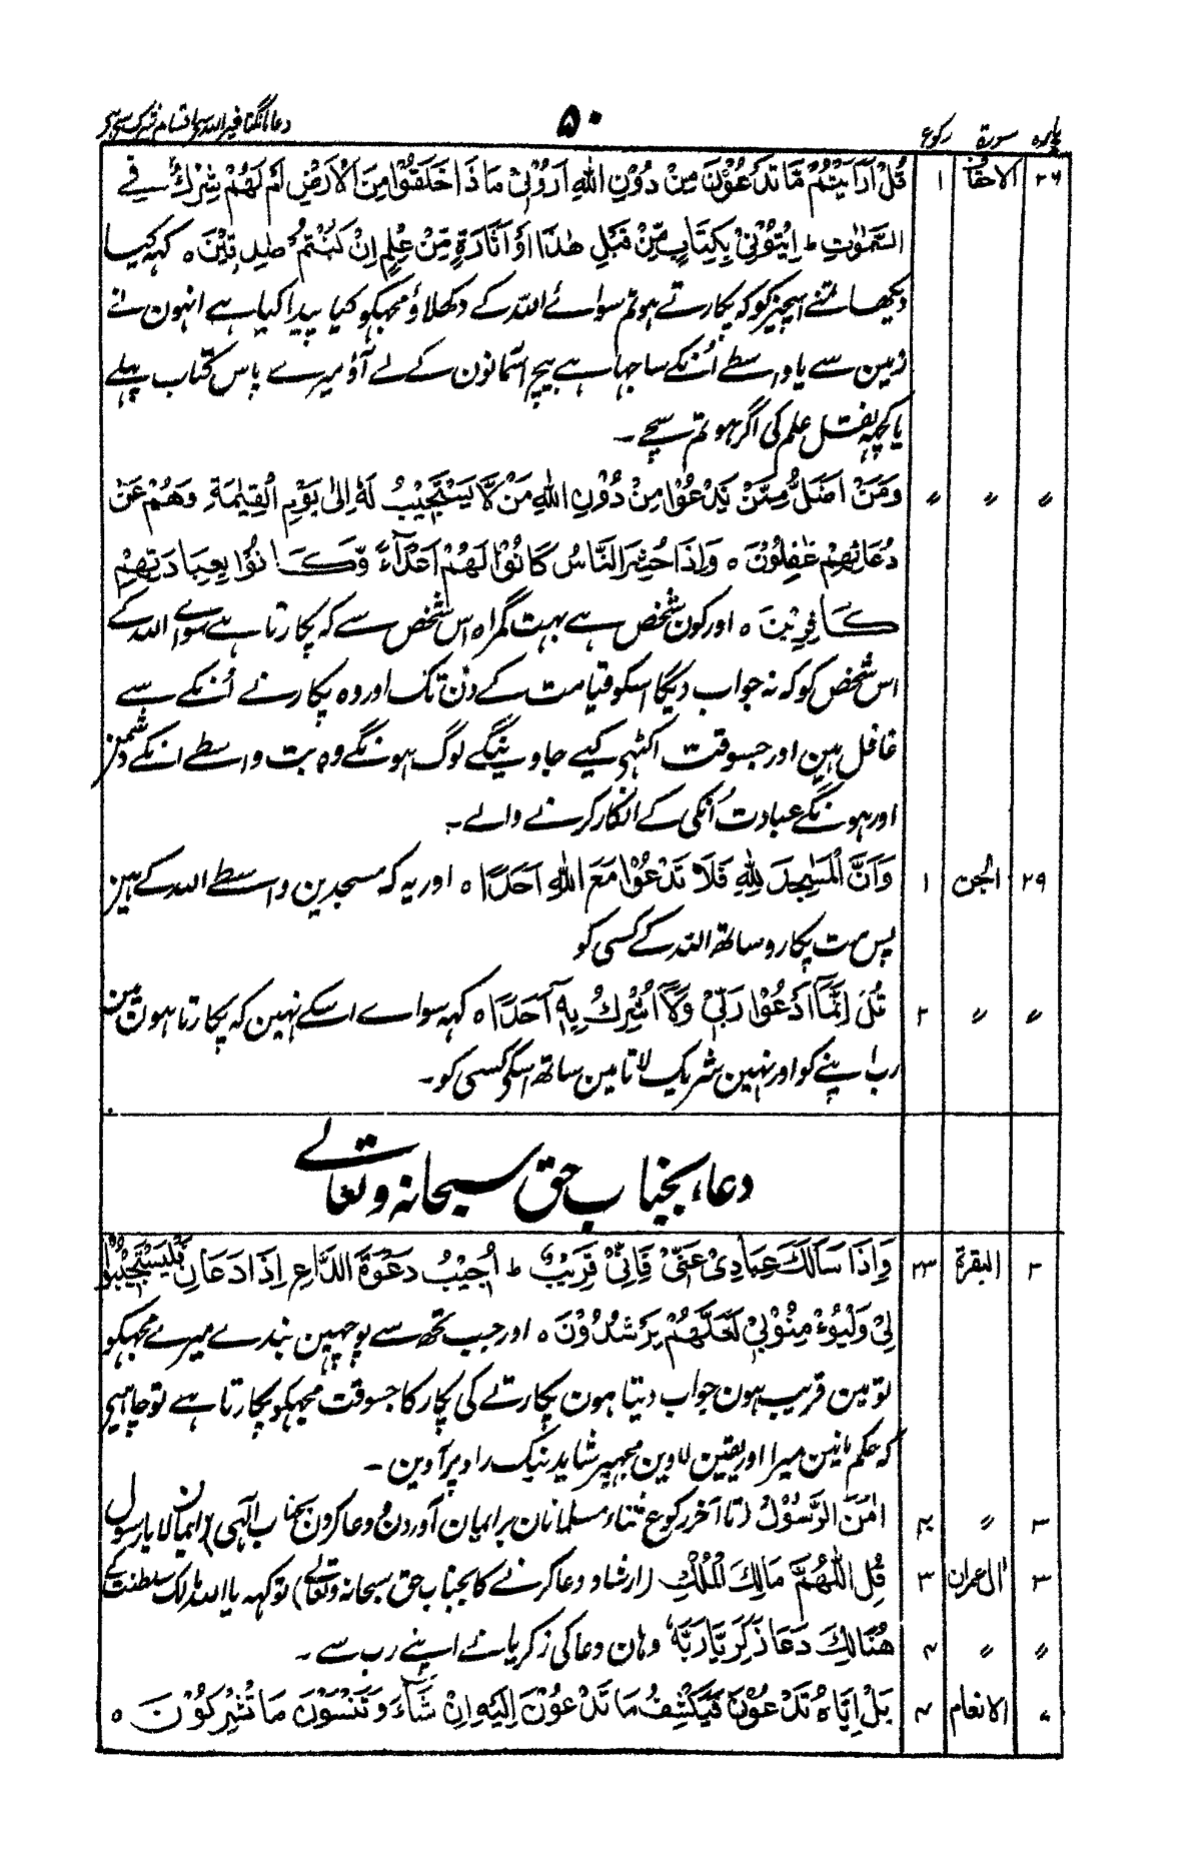 پارہ سورۃ رکوع ۵۰ دعا مانگنا غیر اللہ سے اقسام شرک سے ہے
۲۶ الاحقاف ۱ قُلْ اَرَاَيْتُمْ مَّا تَدْعُوْنَ مِنْ دُوْنِ اللّٰهِ اَرُوْنِىْ مَا ذَا خَلَقُوْا مِنَ الْاَرْضِ اَمْ لَهُمْ شِرْكٌ فِے
السَّمٰوٰتِ ط اِيْتُوْنِىْ بِكِتَابٍ مِّنْ قَبْلِ هٰذَا اَوْ اَثَارَةٍ مِّنْ عِلْمٍ اِنْ كُنْتُمْ صٰدِقِيْنَ ہ کہہ کیا
دیکھا تمنے اسچیز کو کہ پکارتے ہو تم سوائے اللہ کے دکھلاؤ مجہکو کیا پیدا کیا ہے انہون نے
زمین سے یا واسطے اُنکے ساجہا ہے بیچ آسمانون کے لے آؤ میرے پاس کتاب پہلے
یا کچہہ نقل علم کی اگر ہو تم سچے ۔
〃 〃 〃 وَمَنْ اَضَلُّ مِمَّنْ يَّدْعُوْا مِنْ دُوْنِ اللّٰهِ مَنْ لَّا يَسْتَجِيْبُ لَهٗ اِلٰى يَوْمِ الْقِيٰمَةِ وَهُمْ عَنْ
دُعَائِهِمْ غٰفِلُوْنَ ہ وَاِذَا حُشِرَ النَّاسُ كَانُوْا لَهُمْ اَعْدَآءً وَّكَانُوْا بِعِبَادَتِهِمْ
كَافِرِيْنَ ہ اور کون شخص ہے بہت گمراہ اس شخص سے کہ پکارتا ہے سوائے اللہ کے
اس شخص کو کہ نہ جواب دیگا اسکو قیامت کے دن تک اور وہ پکارنے اُنکے سے
غافل ہین اور جسوقت اکٹہی کیے جاوینگے لوگ ہونگے وہ بت واسطے انکے دشمن
اور ہونگے عبادت اُنکی کے انکار کرنے والے ۔
۲۹ الجن ۱ وَاَنَّ الْمَسٰجِدَ لِلّٰهِ فَلَا تَدْعُوْا مَعَ اللّٰهِ اَحَدًا ہ اور یہ کہ مسجدین واسطے اللہ کے ہین
پس مت پکارو ساتھ اللہ کے کسی کو
〃 〃 ۲ قُلْ اِنَّمَآ اَدْعُوْا رَبِّىْ وَلَآ اُشْرِكُ بِهٖٓ اَحَدًا ہ کہہ سوائے اسکے نہین کہ پکارتا ہون مین
رب اپنے کو اور نہین شریک لاتا مین ساتھ اسکی کسی کو ۔
دعاء بجناب حق سبحانہ وتعالےٰ
۲ البقرۃ ۲۳ وَاِذَا سَاَلَكَ عِبَادِىْ عَنِّىْ فَاِنِّىْ قَرِيْبٌ ط اُجِيْبُ دَعْوَةَ الدَّاعِ اِذَا دَعَانِ فَلْيَسْتَجِيْبُوْا
لِىْ وَلْيُؤْمِنُوْا بِىْ لَعَلَّهُمْ يَرْشُدُوْنَ ہ اور جب تجھ سے پوچہین بندے میرے مجہکو
تو مین قریب ہون جواب دیتا ہون پکارتے کی پکار کا جسوقت مجہکو پکارتا ہے تو چاہیے
کہ حکم مانین میرا اور یقین لاوین مجہپر شاید نیک راہ پر آوین ۔
۳ 〃 اٰمَنَ الرَّسُوْلُ (تا آخر رکوع ثناء مسلمانان بر ایمان آوردن و دعا کرون بجناب الٰہی) ایمان لایا رسول
۳ آل عمران ۳ قُلِ اللّٰهُمَّ مَالِكَ الْمُلْكِ (ارشاد دعا کرنے کا بجناب حق سبحانہ وتعالےٰ) تو کہہ یا اللہ مالک سلطنت کے
〃 〃 ۴ هُنَالِكَ دَعَا زَكَرِيَّا رَبَّهٗ وہان دعا کی زکریا نے اپنے رب سے ۔
۷ الانعام ۴ بَلْ اِيَّاهُ تَدْعُوْنَ فَيَكْشِفُ مَا تَدْعُوْنَ اِلَيْهِ اِنْ شَآءَ وَتَنْسَوْنَ مَا تُشْرِكُوْنَ ہ